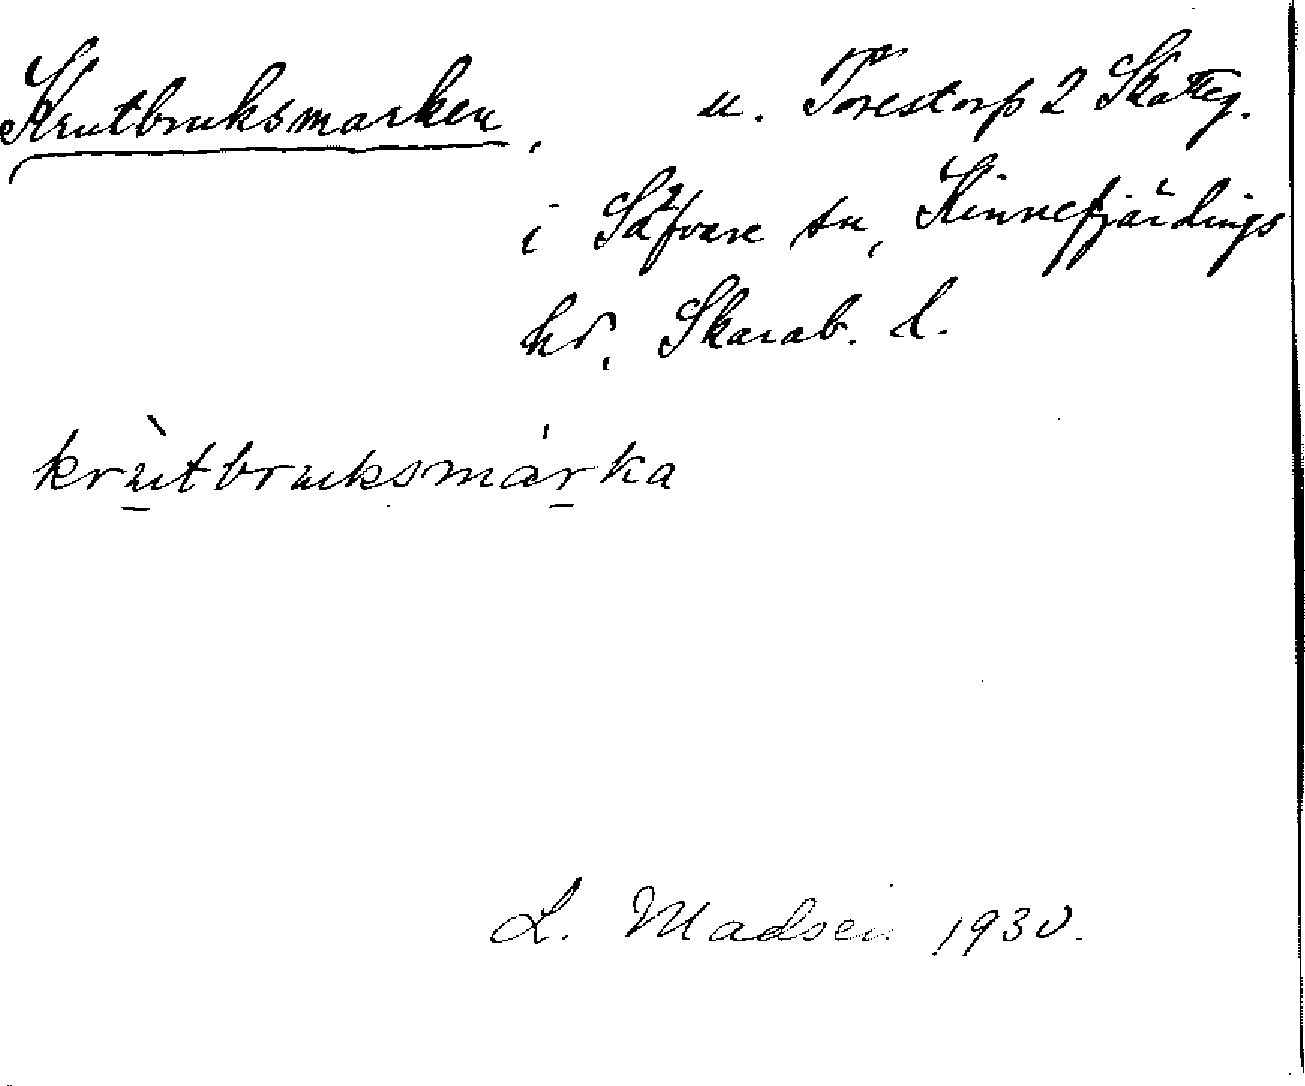 Krutbruksmarken, u. Torestorp 2 Skatteg.
i Säfvare sn, Kinnefjärdings
hd, Skarab. l.
krùtbruksmárka
L. Madsen 1930.